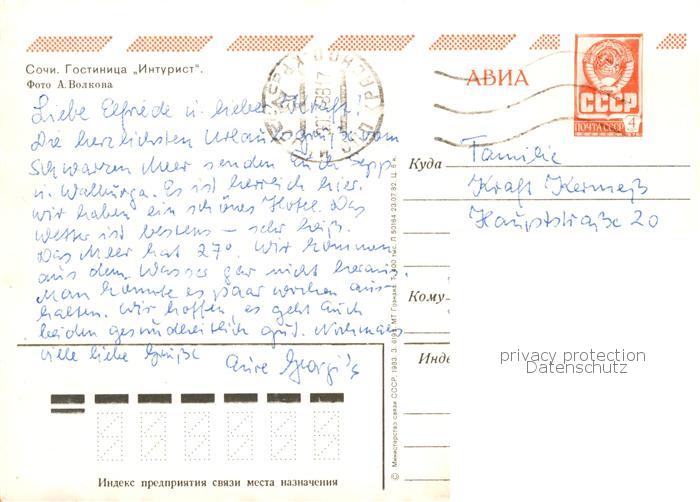 Сочи. Гостиница „Интурист".
Фото А.Волкова
АВИА
СССР
ПОЧТА СССР 4
Liebe Elfriede u. lieber Kraft!
Die herzlichsten Urlaubsgrüße vom
Schwarzen Meer senden Euch Sepp
u. Walburga. Es ist herrlich hier.
Wir haben ein schönes Hotel. Das
Wetter ist bestens – sehr heiß.
Das Meer hat 27°. Wir kommen
aus dem Wasser gar nicht heraus.
Man könnte es paar Wochen aus-
halten. Wir hoffen, es geht Euch
beiden gesundheitlich gut. Nochmals
viele liebe Grüße
Eure Georgi's
Куда
Familie
Kraft Kermeß
Hauptstraße 20
Кому
Инде
privacy protection
Datenschutz
Индекс предприятия связи места назначения
© Министерство связи СССР. 1983. З. МТ Гознака.